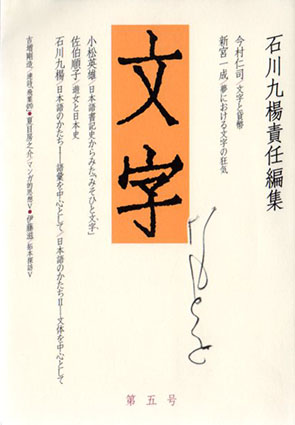 石川九楊責任編集
今村仁司/文字と貨幣
新宮一成/夢における文字の狂気
文字
小松英雄/日本語書記史からみた「みそひと文字」
佐伯順子/遊女と日本史
石川九楊/日本語のかたちI―語彙を中心として/日本語のかたちII―文体を中心として
夏目房之介/マンガ的思想V●伊藤滋/拓本探訪V
第五号